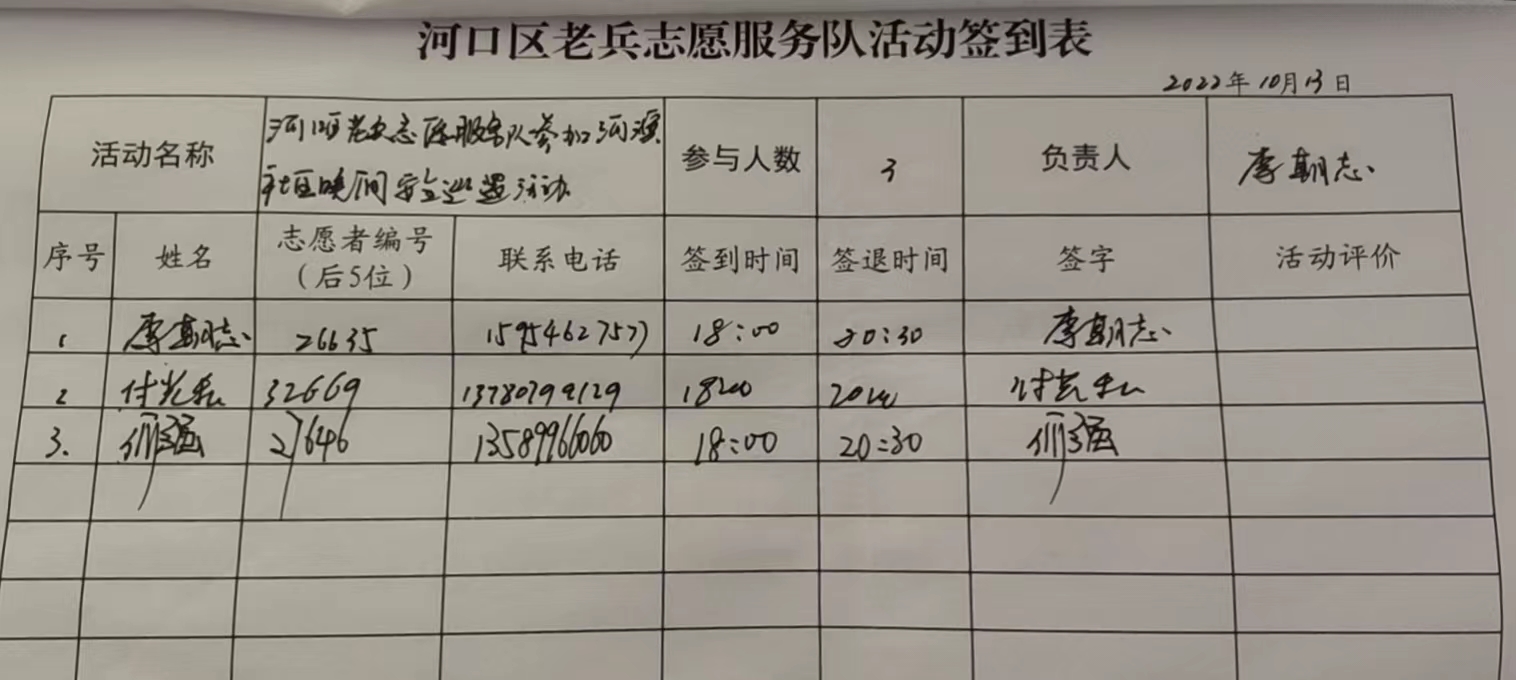 河口区老兵志愿服务队活动签到表
2022年10月13日
活动名称 河口区老兵志愿服务队参加河滨 参与人数 3 负责人 李期志
社区晚间安全巡逻活动
序号 姓名 志愿者编号 联系电话 签到时间 签退时间 签字 活动评价
(后5位)
1 李期志 26635 15954627577 18:00 20:30 李期志
2 付光 32669 13780799129 18:00 20 付光
3. 强 27646 13589966060 18:00 20:30 强